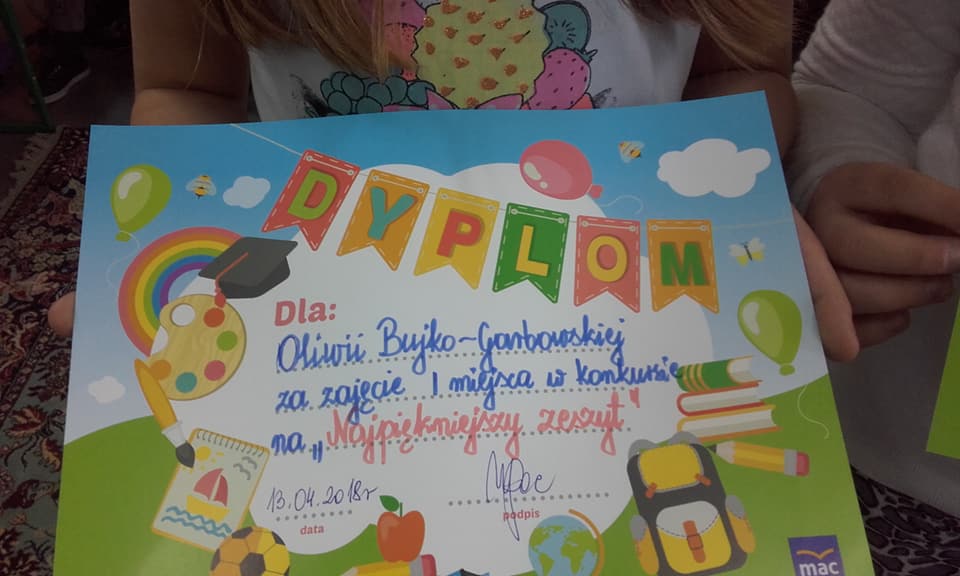 DYPLOM
Dla:
Oliwii Bujko-Garbowskiej
za zajęcie I miejsca w konkursie
na „Najpiękniejszy zeszyt"
13.04.2018r
data
podpis
mac